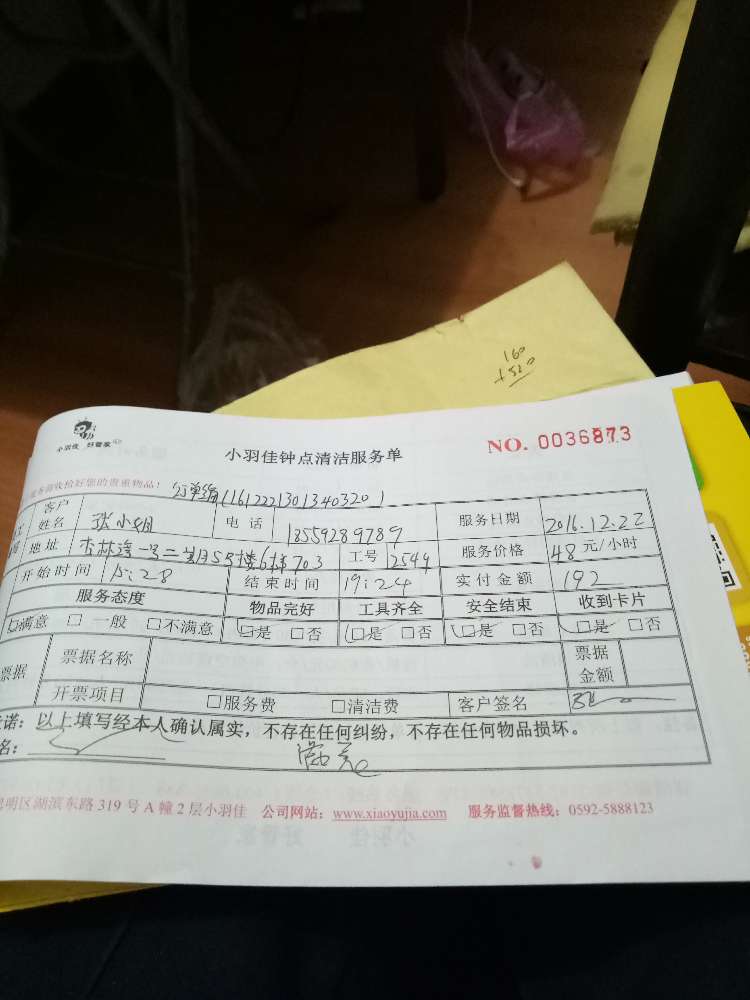 160
+320
小羽佳 好管家
小羽佳钟点清洁服务单
NO. 0036873
您的贵重物品！
客户姓名 张小姐 电话 13559289789 服务日期 2016.12.22
地址 杏林湾一号二期 703 工号 2544 服务价格 48 元/小时
开始时间 15:28 结束时间 19:24 实付金额 192
服务态度 物品完好 工具齐全 安全结束 收到卡片
☑满意 □ 一般 □不满意 ☑是 □否 ☑是 □否 ☑是 □否 ☑是 □否
票据 票据名称 票据金额
开票项目 □服务费 □清洁费 客户签名
诺：以上填写经本人确认属实，不存在任何纠纷，不存在任何物品损坏。
名：
明区湖滨东路 319 号 A 幢 2 层小羽佳 公司网站：www.xiaoyujia.com 服务监督热线：0592-5888123